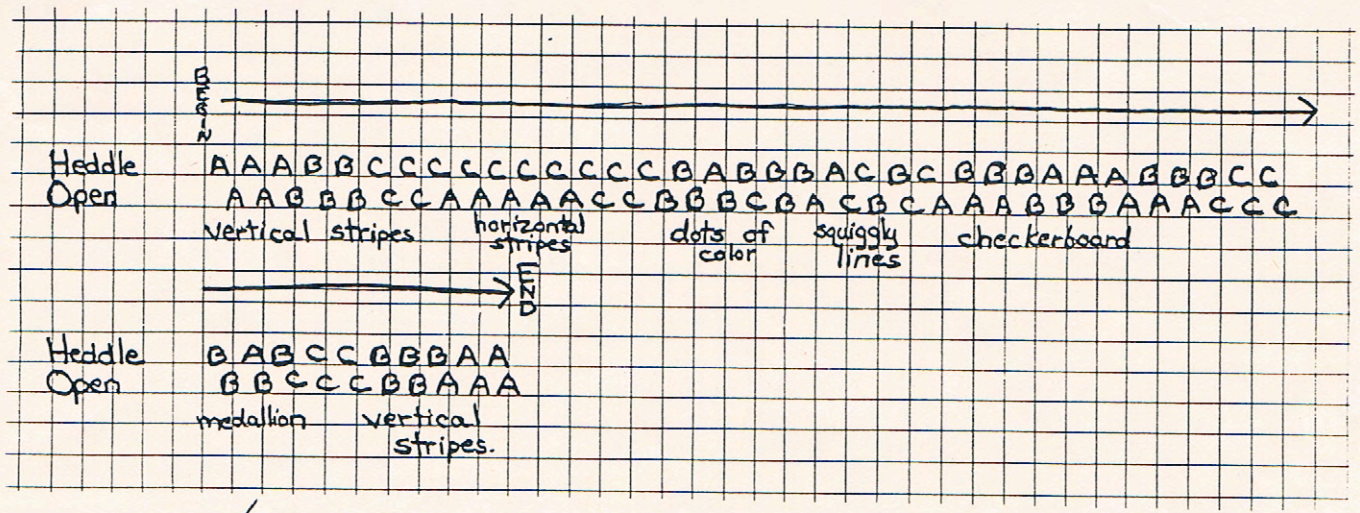 BEGIN
Heddle A A A B B C C C C C C C C C C B A B B B A C B C B B B A A A B B B C C
Open A A B B B C C A A A A A C C B B B C B A C B C A A A B B B A A A C C C
vertical stripes horizontal dots of squiggly checkerboard
stripes color lines
END
Heddle B A B C C B B B A A
Open B B C C C B B A A A
medallion vertical
stripes.